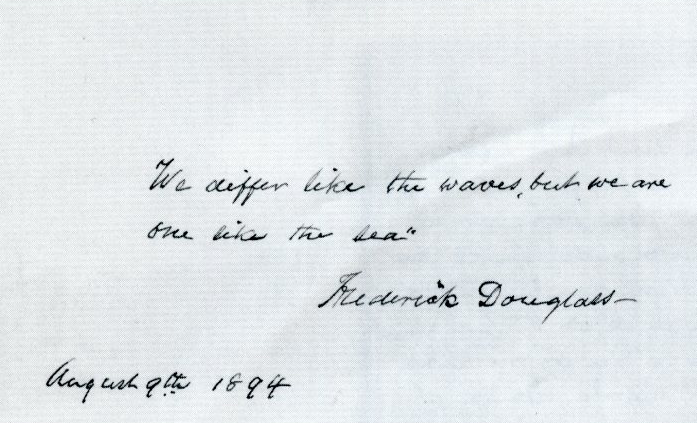 We differ like the waves, but we are
one like the sea"
Frederick Douglass
August 9th 1894